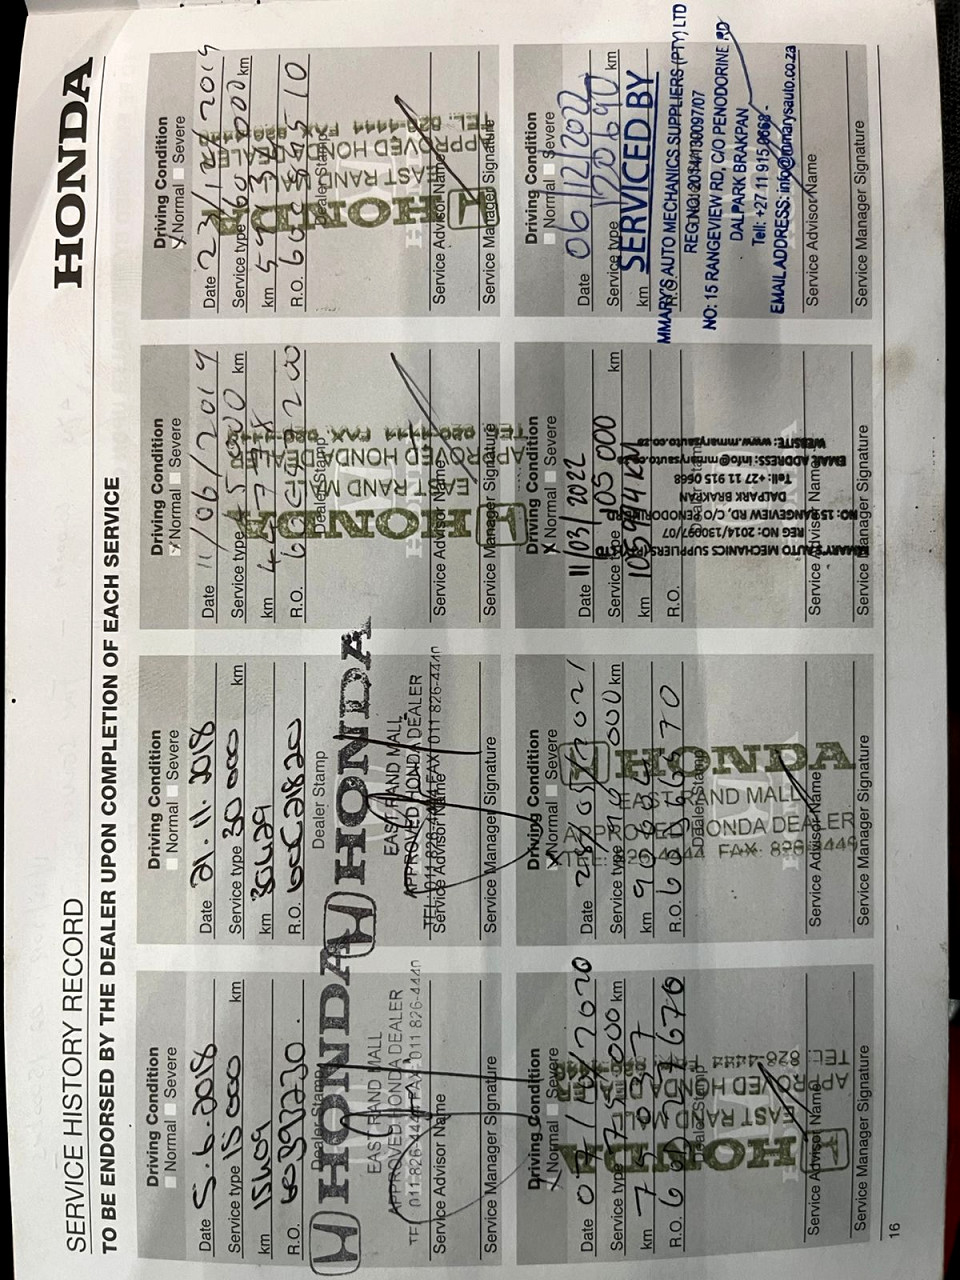 HONDA
SERVICE HISTORY RECORD
TO BE ENDORSED BY THE DEALER UPON COMPLETION OF EACH SERVICE
Driving Condition
Normal Severe
Date 5.6.2018
Service type 15 000 km
km 15409
R.O.
Dealer Stamp
HONDA
EAST RAND MALL
APPROVED HONDA DEALER
011 826-4444 FAX: 011 826-4440
Service Advisor Name
Service Manager Signature
Driving Condition
Normal Severe
Date 21.11.2018
Service type 30 000 km
km 30429
R.O.
Dealer Stamp
HONDA
EAST RAND MALL
APPROVED HONDA DEALER
TEL: 011 826-4444 FAX: 011 826-4440
Service Advisor Name
Service Manager Signature
Driving Condition
X Normal Severe
Date 11/06/2019
Service type 45 000 km
km
R.O.
Dealer Stamp
HONDA
EAST RAND MALL
APPROVED HONDA DEALER
Service Advisor Name
Service Manager Signature
Driving Condition
X Normal Severe
Date 23/12/2019
Service type 60 000 km
km
R.O.
Dealer Stamp
HONDA
EAST RAND
APPROVED HONDA DEALER
Service Advisor Name
Service Manager Signature
Driving Condition
X Normal Severe
Date 07/10/2020
Service type 75 000 km
km 75037
R.O.
Dealer Stamp
HONDA
EAST RAND MALL
APPROVED HONDA DEALER
TEL: 826-4444
Service Advisor Name
Service Manager Signature
Driving Condition
X Normal Severe
Date
Service type 000 km
km
R.O.
Dealer Stamp
HONDA
EAST RAND MALL
APPROVED HONDA DEALER
826-4444 FAX: 826-4440
Service Advisor Name
Service Manager Signature
Driving Condition
X Normal Severe
Date 11/03/2022
Service type 105 000 km
km
R.O.
MMARY'S AUTO MECHANICS SUPPLIERS (PTY) LTD
REG NO: 2014/130097/07
NO: 15 RANGEVIEW RD, C/O PENODORINE RD
DALPARK BRAKPAN
Tell: +27 11 915 0668
EMAIL ADDRESS: info@mmarysauto.co.za
WEBSITE: www.mmarysauto.co.za
Service Advisor Name
Service Manager Signature
Driving Condition
Normal Severe
Date 06/12/2022
Service type 120690 km
km
R.O.
SERVICED BY
MMARY'S AUTO MECHANICS SUPPLIERS (PTY) LTD
REG NO: 2014/130097/07
NO: 15 RANGEVIEW RD, C/O PENODORINE RD
DALPARK BRAKPAN
Tell: +27 11 915 0668
EMAIL ADDRESS: info@mmarysauto.co.za
Service Advisor Name
Service Manager Signature
16